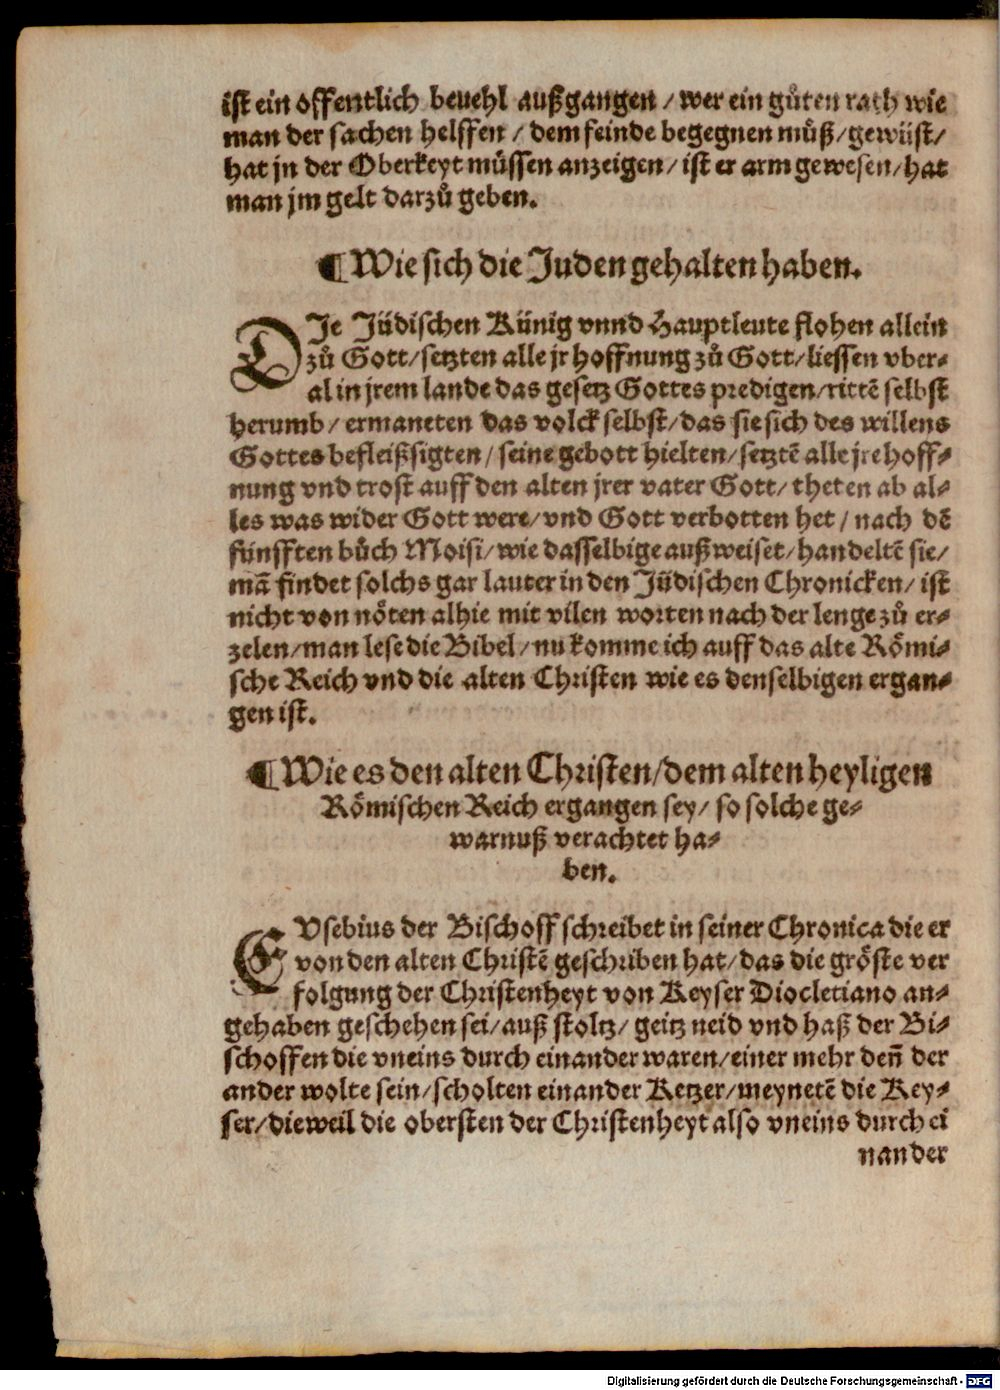 ist ein offentlich beuehl außgangen / wer ein gůten rath wie
man der sachen helffen / dem feinde begegnen můß / gewüst /
hat jn der Oberkeyt müssen anzeigen / ist er arm gewesen / hat
man jm gelt darzů geben.
¶ Wie sich die Juden gehalten haben.
DJe Jüdischen Künig vnnd Hauptleute flohen allein
zů Gott / setzten alle jr hoffnung zů Gott / liessen vber⸗
al in jrem lande das gesetz Gottes predigen / rittē selbst
herumb / ermaneten das volck selbst / das sie sich des willens
Gottes befleißsigten / seine gebott hielten / setztē alle jre hoff⸗
nung vnd trost auff den alten jrer vater Gott / theten ab al⸗
les was wider Gott were / vnd Gott verbotten het / nach dē
fünfften bůch Moisi / wie dasselbige außweiset / handeltē sie /
mā findet solchs gar lauter in den Jüdischen Chronicken / ist
nicht von nöten alhie mit vilen worten nach der lenge zů er⸗
zelen / man lese die Bibel / nu komme ich auff das alte Römi⸗
sche Reich vnd die alten Christen wie es denselbigen ergan⸗
gen ist.
¶ Wie es den alten Christen / dem alten heyligen
Römischen Reich ergangen sey / so solche ge⸗
warnuß verachtet ha⸗
ben.
EVsebius der Bischoff schreibet in seiner Chronica die er
von den alten Christē geschriben hat / das die gröste ver
folgung der Christenheyt von Keyser Diocletiano an⸗
gehaben geschehen sei / auß stoltz / geitz neid vnd haß der Bi⸗
schoffen die vneins durch einander waren / einer mehr deñ der
ander wolte sein / scholten einander Ketzer / meynetē die Key⸗
ser / dieweil die obersten der Christenheyt also vneins durch ei
nander
Digitalisierung gefördert durch die Deutsche Forschungsgemeinschaft - DFG